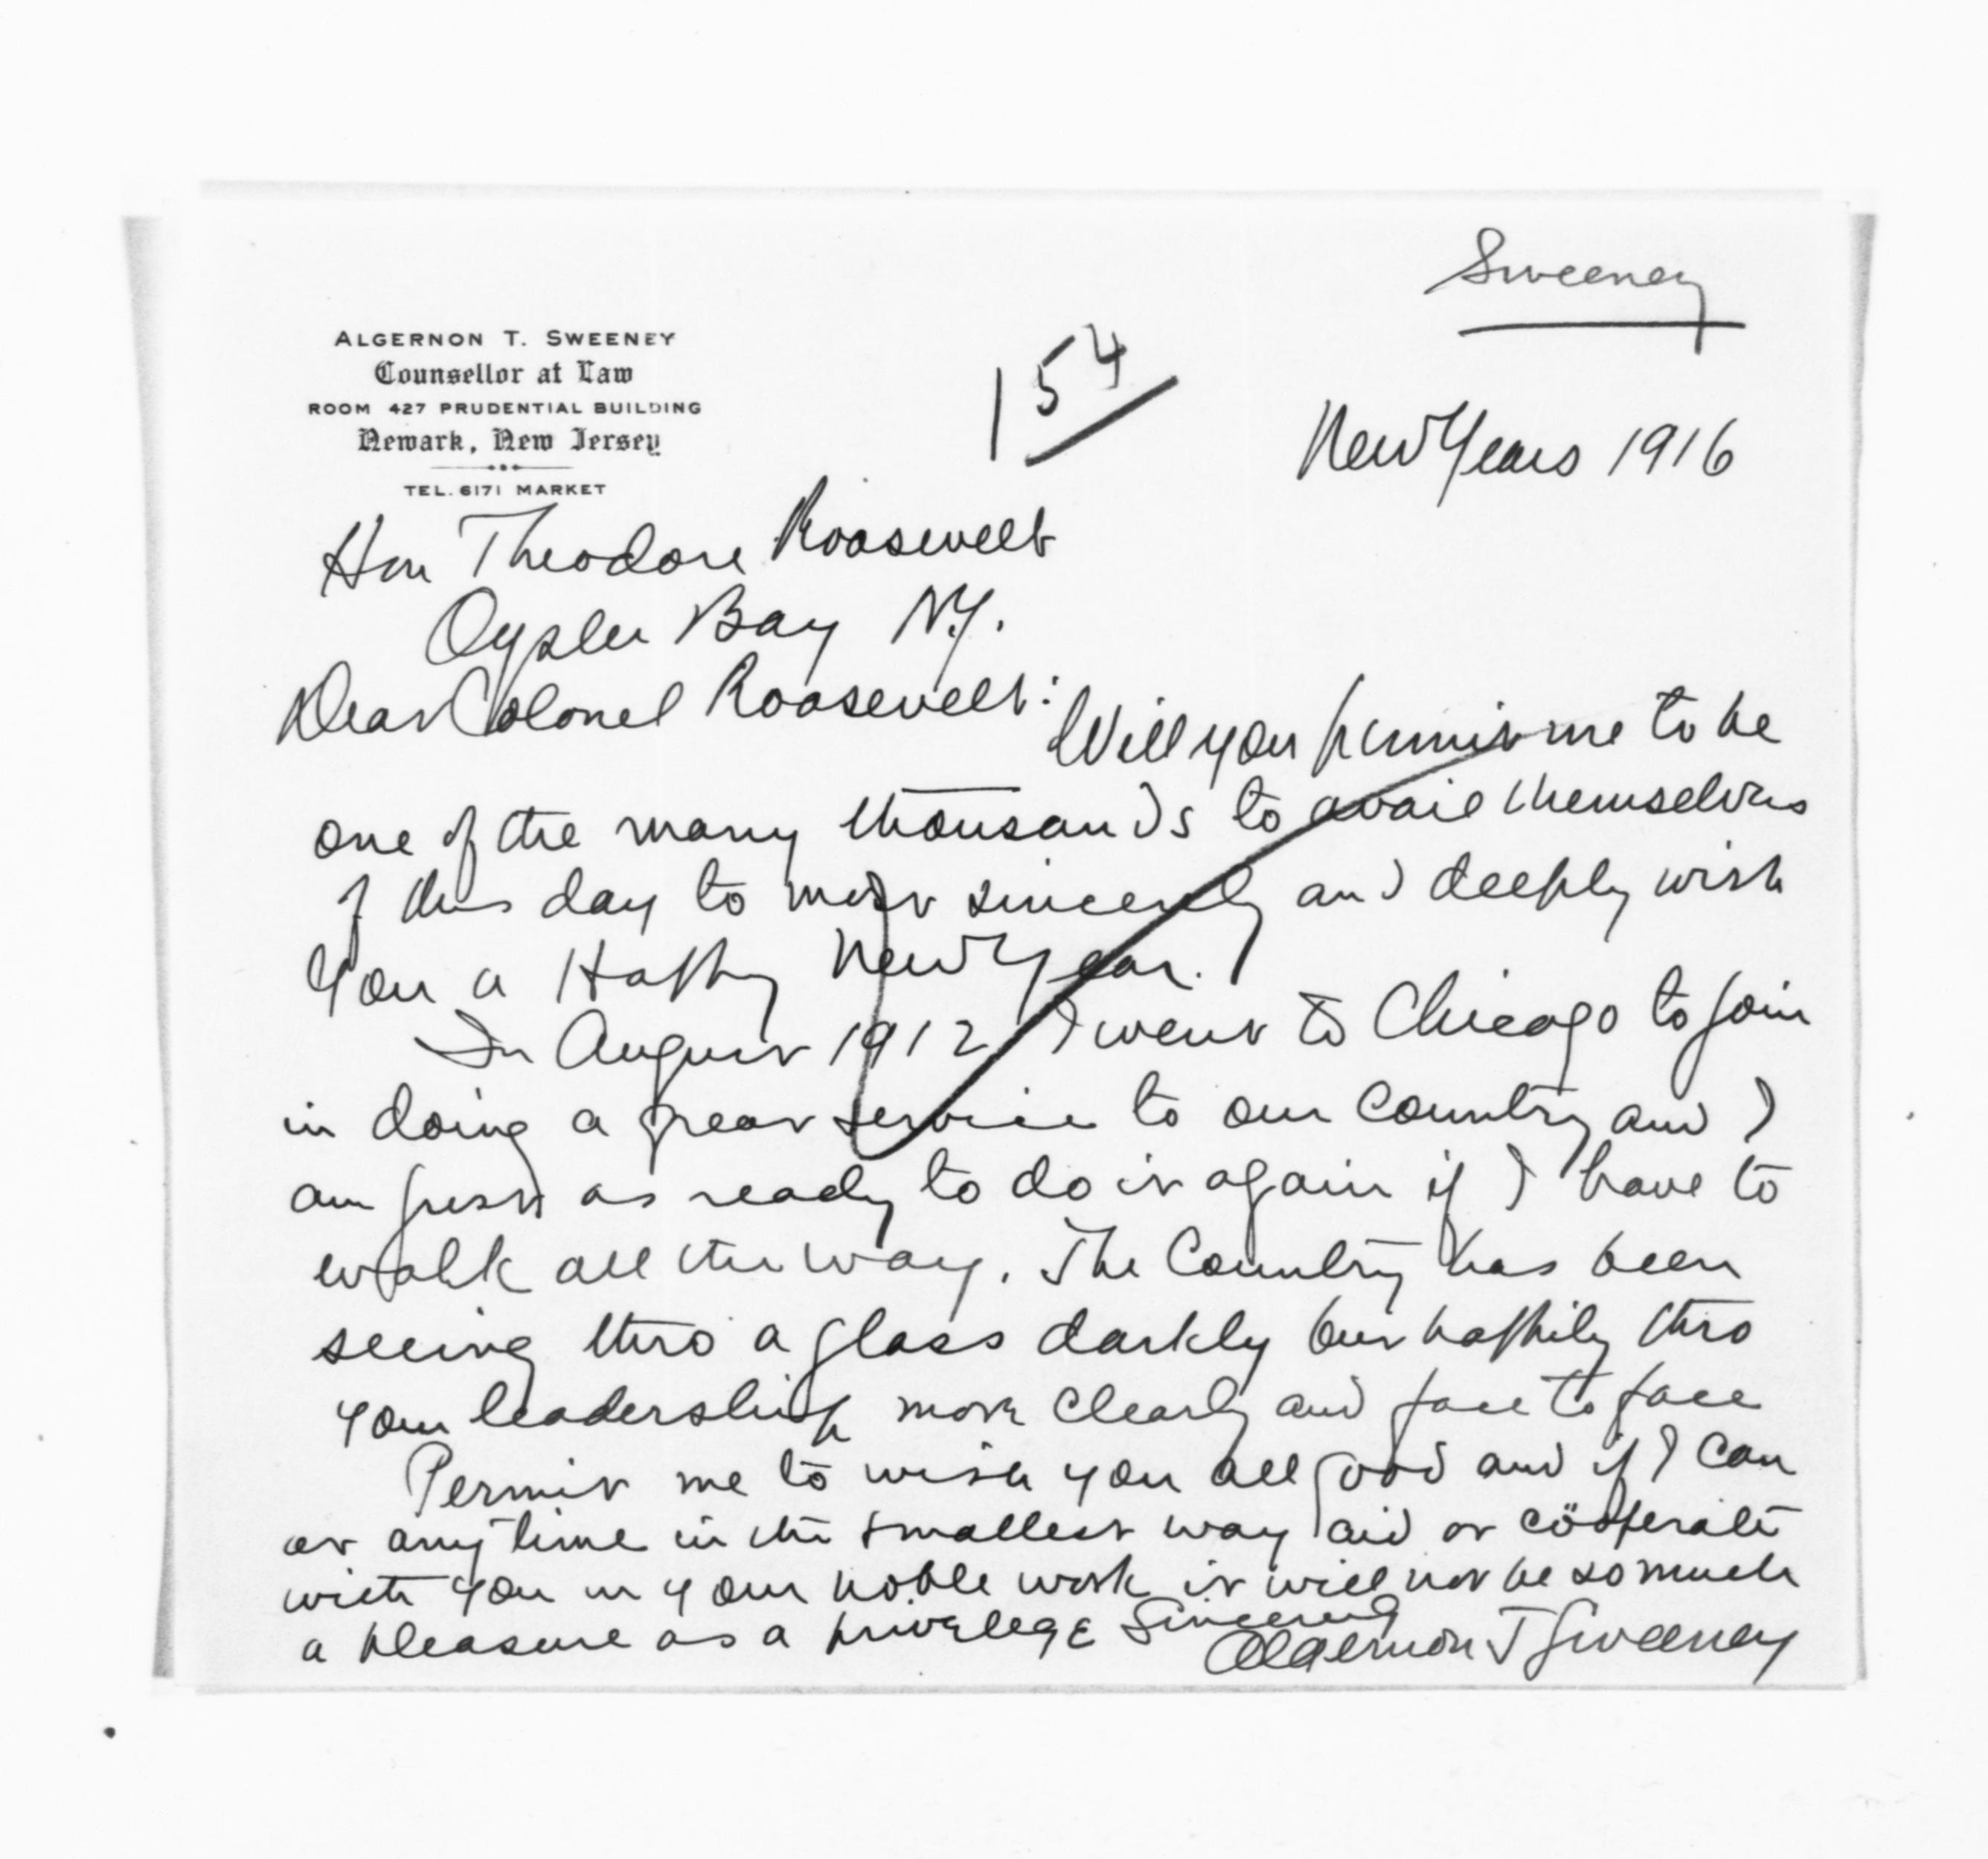 Sweeney
ALGERNON T. SWEENEY
Counsellor at Law
ROOM 427 PRUDENTIAL BUILDING
Newark, New Jersey
TEL. 6171 MARKET
154
New Years 1916
Hon Theodore Roosevelt
Oyster Bay N.Y.
Dear Colonel Roosevelt:
Will you permit me to be
one of the many thousands to avail themselves
of this day to most sincerely and deeply wish
you a Happy New Year.
In August 1912 I went to Chicago to join
in doing a great service to our Country and I
am just as ready to do it again if I have to
walk all the way. The Country has been
seeing thro a glass darkly but happily thro
your leadership more clearly and face to face
Permit me to wish you all good and if I can
at any time in the smallest way aid or coöperate
with you in your noble work it will not be so much
a pleasure as a privilege Sincerely
Algernon T Sweeney